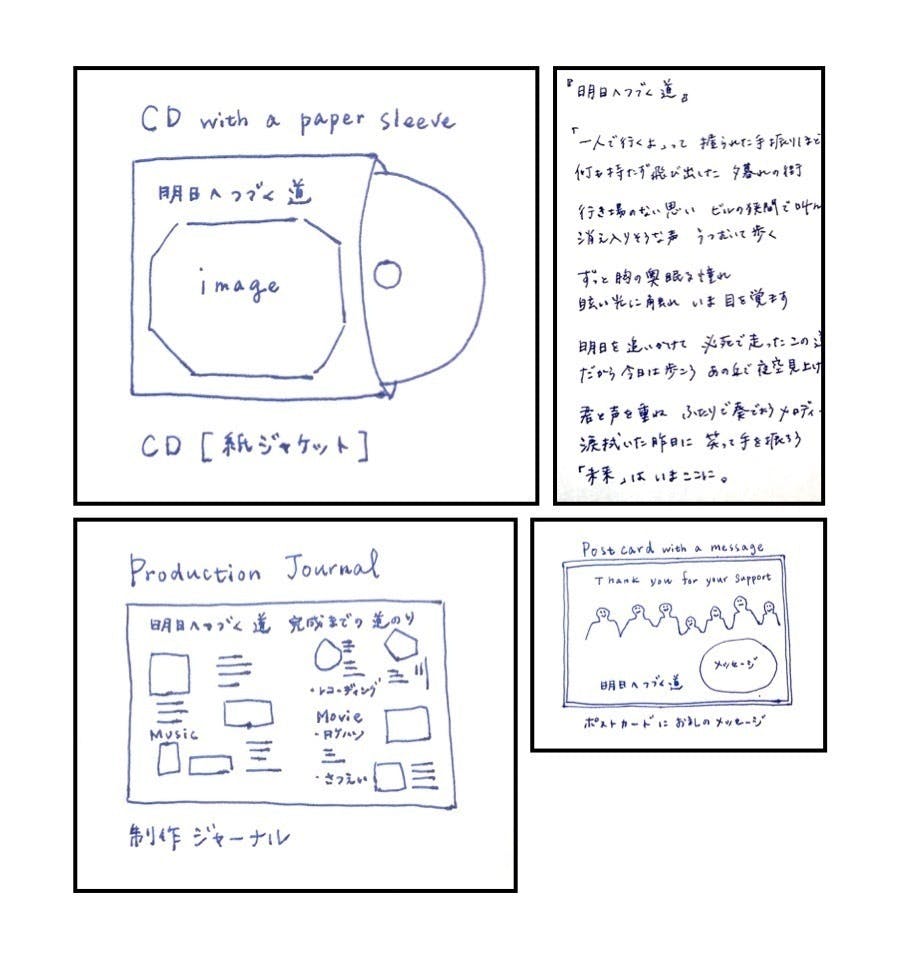 CD with a paper sleeve
明日へつづく道
image
CD [紙ジャケット]
『明日へつづく道』
「一人で行くよ」って 握られた手振りほど
何も持たず飛び出した 夕暮れの街
行き場のない思い ビルの狭間で叫ん
消え入りそうな声 うつむいて歩く
ずっと胸の奥眠る憧れ
眩い光に触れ いま目を覚ます
明日を追いかけて 必死で走ったこの道
だから今日は歩こう あの丘で夜空見上げ
君と声を重ね ふたりで奏でおう メロディー
涙拭いた昨日に 笑って手を振ろう
「未来」は いまここに。
Production Journal
明日へつづく道 完成までの道のり
・レコーディング
Music
Movie
・ロケハン
・さつえい
制作ジャーナル
Postcard with a message
Thank you for your support
メッセージ
明日へつづく道
ポストカードにお礼のメッセージ